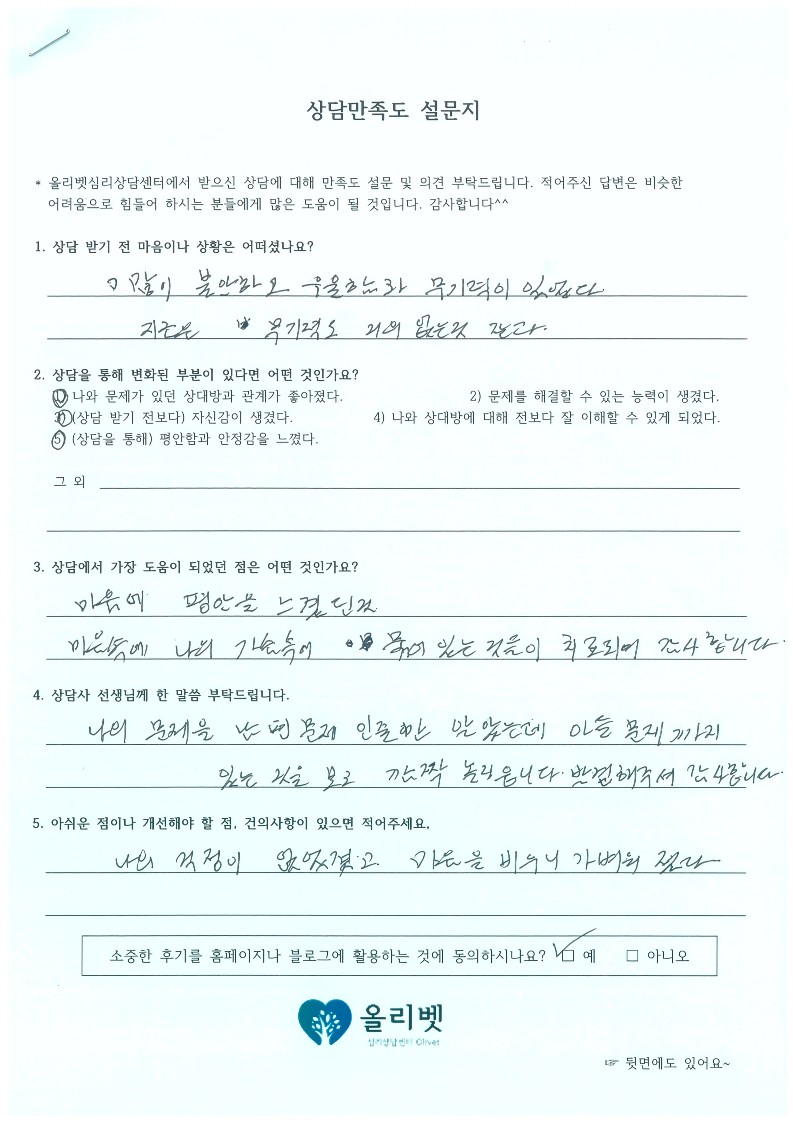 상담만족도 설문지
* 올리벳심리상담센터에서 받으신 상담에 대해 만족도 설문 및 의견 부탁드립니다. 적어주신 답변은 비슷한
어려움으로 힘들어 하시는 분들에게 많은 도움이 될 것입니다. 감사합니다^^
1. 상담 받기 전 마음이나 상황은 어떠셨나요?
많이 불안하고 우울함과 무기력이 있었다
지금은 무기력도 거의 없는것 같다.
2. 상담을 통해 변화된 부분이 있다면 어떤 것인가요?
1) 나와 문제가 있던 상대방과 관계가 좋아졌다. 2) 문제를 해결할 수 있는 능력이 생겼다.
3) (상담 받기 전보다) 자신감이 생겼다. 4) 나와 상대방에 대해 전보다 잘 이해할 수 있게 되었다.
5) (상담을 통해) 평안함과 안정감을 느꼈다.
그 외
3. 상담에서 가장 도움이 되었던 점은 어떤 것인가요?
마음에 평안을
마음속에 나의 가슴속에 있는 것들이 치료되며 감사합니다.
4. 상담사 선생님께 한 말씀 부탁드립니다.
나의 문제을 남편문제 인줄만 알았는데 아들 문제까지
있는 것을 보고 깜짝 놀라웁니다. 해주셔 감사합니다.
5. 아쉬운 점이나 개선해야 할 점, 건의사항이 있으면 적어주세요.
나의 걱정이 마음을 비우니 가벼워 졌다
소중한 후기를 홈페이지나 블로그에 활용하는 것에 동의하시나요? ☑ 예 □ 아니오
올리벳
심리상담센터 Olivet
☞ 뒷면에도 있어요~